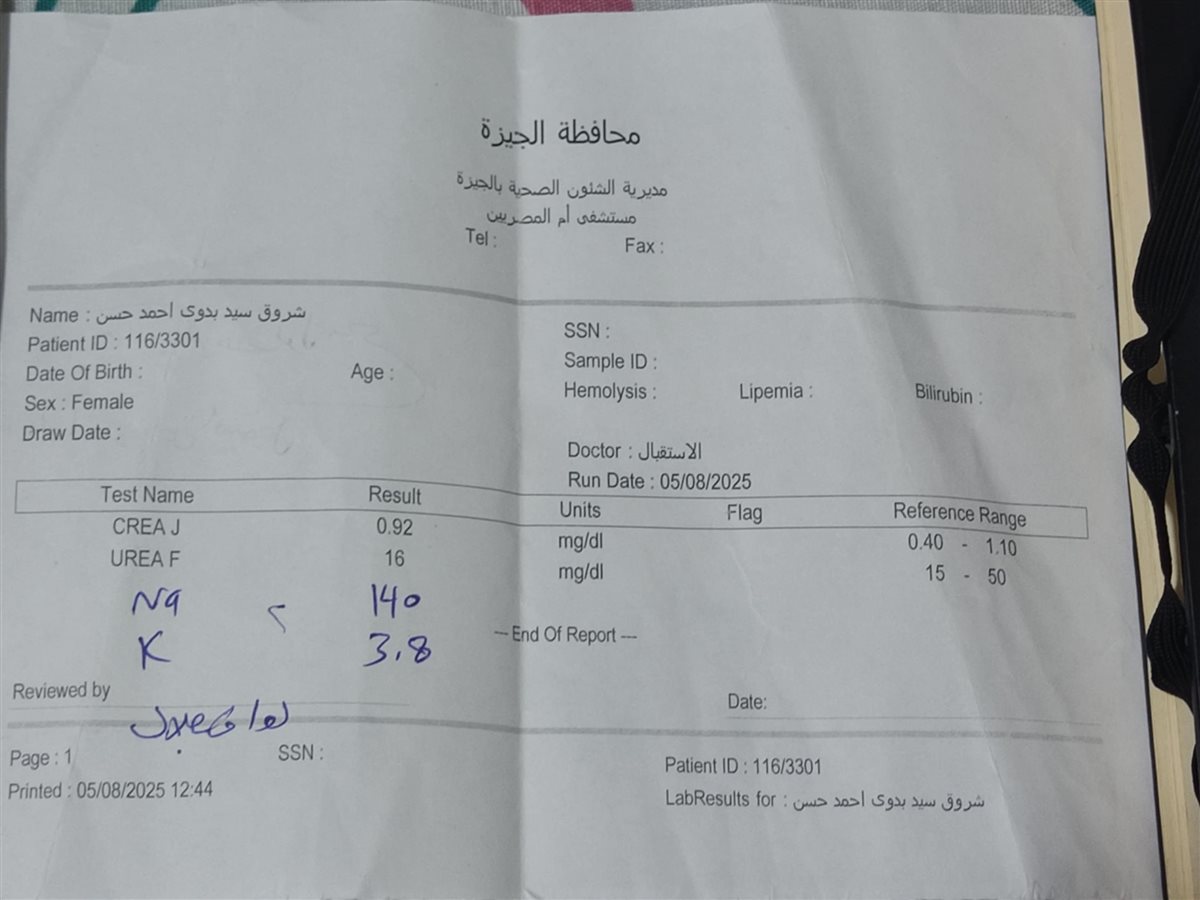 محافظة الجيزة
مديرية الشئون الصحية بالجيزة
مستشفى أم المصريين
Tel : Fax :
Name : شروق سيد بدوى احمد حسن
SSN :
Patient ID : 116/3301
Sample ID :
Date Of Birth : Age :
Hemolysis : Lipemia : Bilirubin :
Sex : Female
Draw Date :
Doctor : الاستقبال
Run Date : 05/08/2025
Test Name Result Units Flag Reference Range
CREA J 0.92 mg/dl 0.40 - 1.10
UREA F 16 mg/dl 15 - 50
Na 140
K 3.8
--- End Of Report ---
Reviewed by Date:
Page : 1 SSN : Patient ID : 116/3301
Printed : 05/08/2025 12:44 LabResults for : شروق سيد بدوى احمد حسن